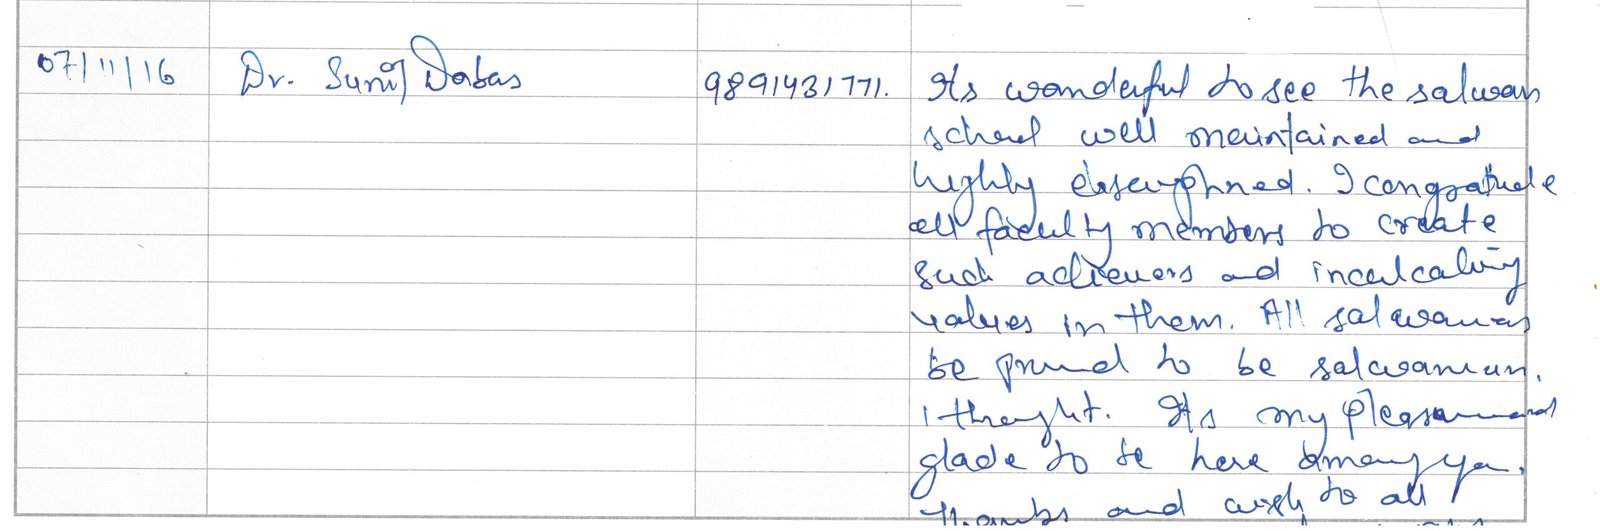 07/11/16 Dr. Sunil Dabas 9891431771. Its wonderful to see the salwan
school well maintained and
highly disciplined. I congratulate
all faculty members to create
such achievers and inculcating
values in them. All salwanians
be proud to be salwanian.
I thought. Its my pleasure and
glade to be here among you.
Thanks and wish to all